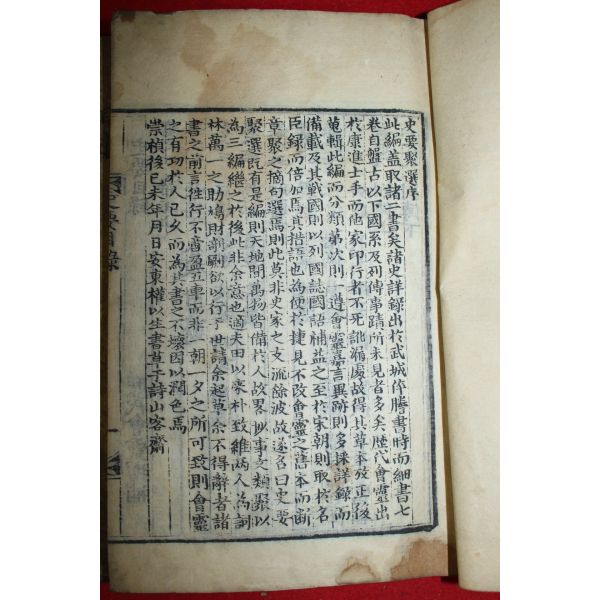 史要聚選序
此編盖取諸二書矣諸史詳録出於武城倅謄書時而細書七
卷自盤古以下國系及列傳事蹟所未見者多矣歴代會靈出
於康進士手而他家印行者不死訛漏處故得其草本攷正後
蒐輯此編而分類第次則一遵會靈嘉言異跡則多採詳録而
備載及其戰國則以列國誌國語補益之至於宋朝則取於名
臣録而倍加焉其措語也為便於捷見不改會靈之語本而斷
章聚之摘句選焉則此莫非史家之支流餘波故遂名曰史要
聚選既有是編則天地間萬物皆備於人故畧掇事文類聚以
為三編繼之於後此非余意也適夫田以采朴致維兩人為詞
林萬一之助鳩財剞劂欲以行于世請余起草余不得辭者諸
書之前言徃行不啻盈五車而非一朝一夕之所可致則會靈
之有功於人已久而為其書之不壞因以潤色焉
崇禎後已未年月日安東權以生書草于詩山客齋